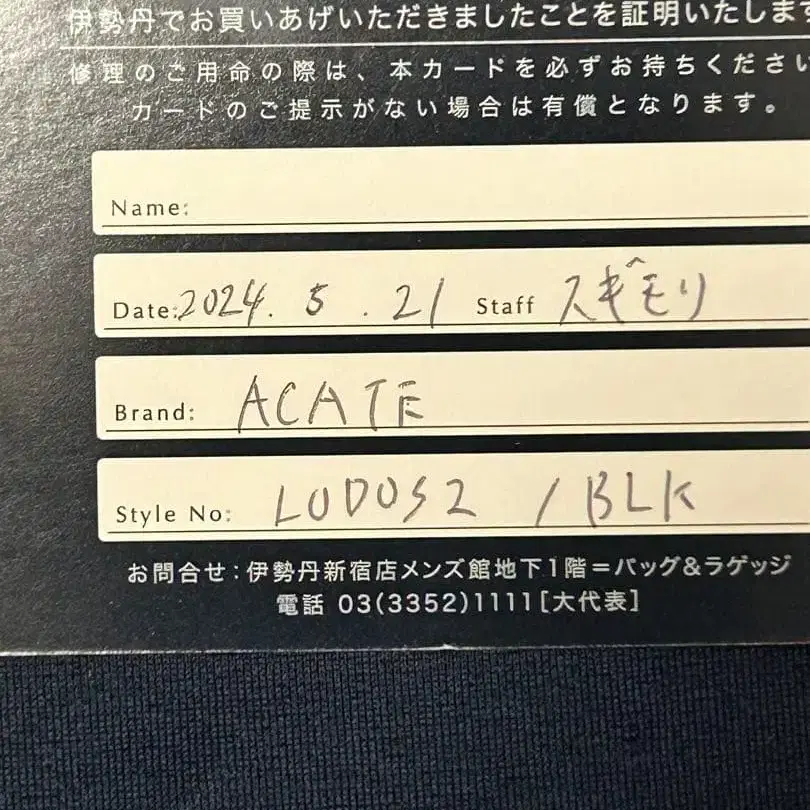 伊勢丹でお買いあげいただきましたことを証明いたします
修理のご用命の際は、本カードを必ずお持ちください
カードのご提示がない場合は有償となります。
Name:
Date: 2024. 5. 21 Staff スギモリ
Brand: ACATE
Style No: LODOS2 / BLK
お問合せ:伊勢丹新宿店メンズ館地下1階=バッグ&ラゲッジ
電話 03(3352)1111[大代表]